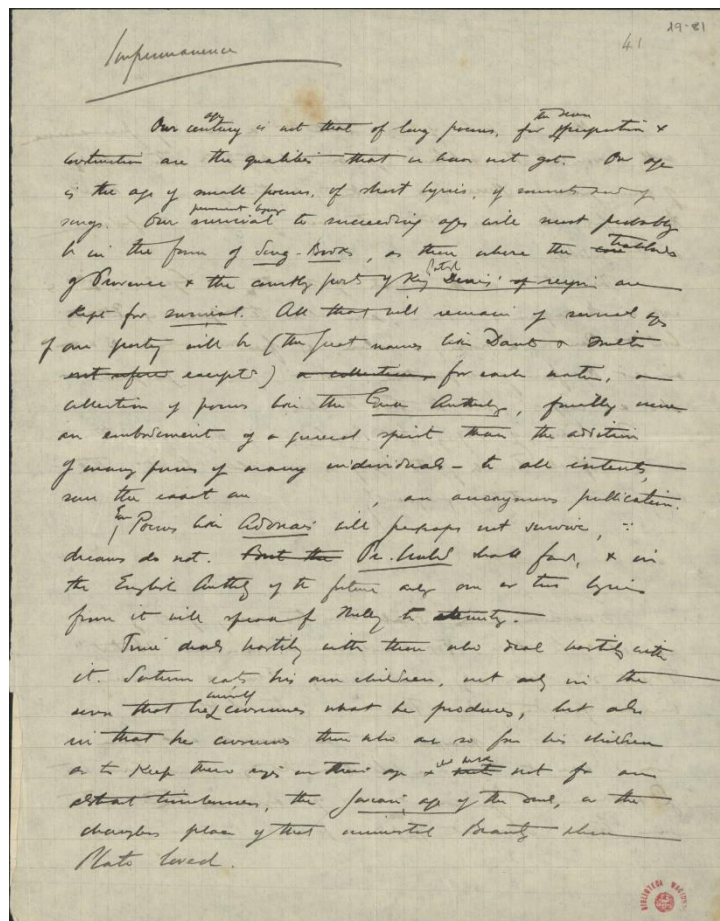 19-81
41
Impermanence
age
the reason
Our century is not that of long poems, for proportion &
construction are the qualities that we have not got. Our age
is the age of small poems, of short lyrics, of sonnets and of
songs. Our survival to succeeding ages will most probably
be in the form of Song-Books, as those where the
of Provence & the courtly poets of King Denis' are
kept for survival. All that will remain of several ages
of our poetry will be (the great names like Dante or Milton
excepted) a collection for each nation, a
collection of poems like the Greek Anthology, more
an embodiment of a general spirit than the addition
of many poems of many individuals — to all intents,
save the exact one , an anonymous publication.
Even Poems like Adonais will perhaps not survive,
dreams do not. But the Pr. Unbd shall fade, & in
the English Anthology of the future only one or two lyrics
from it will speak of Shelley to eternity.
Time deals hostilely with those who deal hostilely with
it. Saturn eats his own children, not only in the
sense that he consumes what he produces, but also
in that he consumes those who are so far his children
as to keep their eyes on their age & not for an
abstract timelessness, the age of the soul, or the
changeless place of that immortal Beauty whom
Plato loved.
BIBLIOTECA NACIONAL